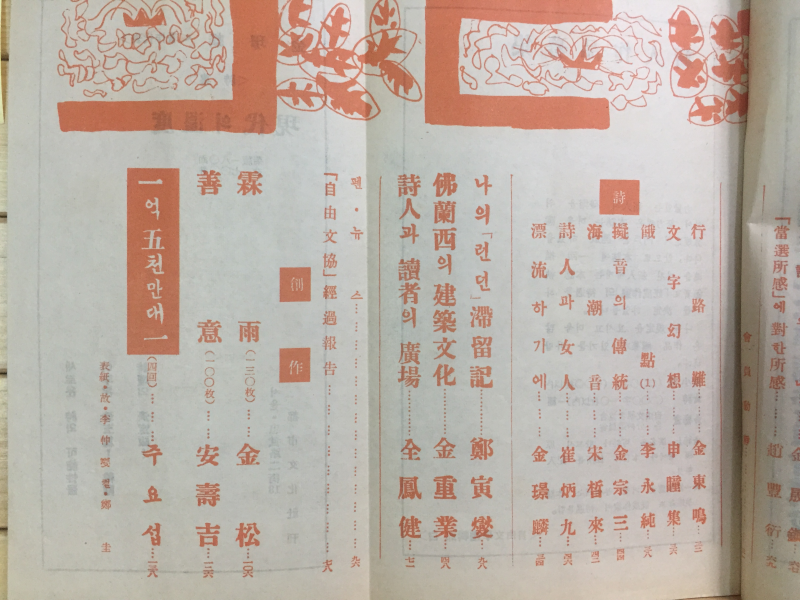 「當選所感」에 對한 所感……趙豐衍
行路難……金東鳴
文字幻想……申瞳集
點(1)……李永純
擬音의 傳統……金宗三
海潮音……宋稶來
詩人과 女人……崔炳九
漂流하기에……金璟麟
詩
나의「런던」滯留記……鄭寅燮
佛蘭西의 建築文化……金重業
詩人과 讀者의 廣場……全鳳健
펜·뉴스……
「自由文協」經過報告……
創作
霖雨(一三〇枚)……金松
善意(一〇〇枚)……安壽吉
一억五천만대一(四回)……주요섭
表紙·故·李仲燮 컷·鄭圭